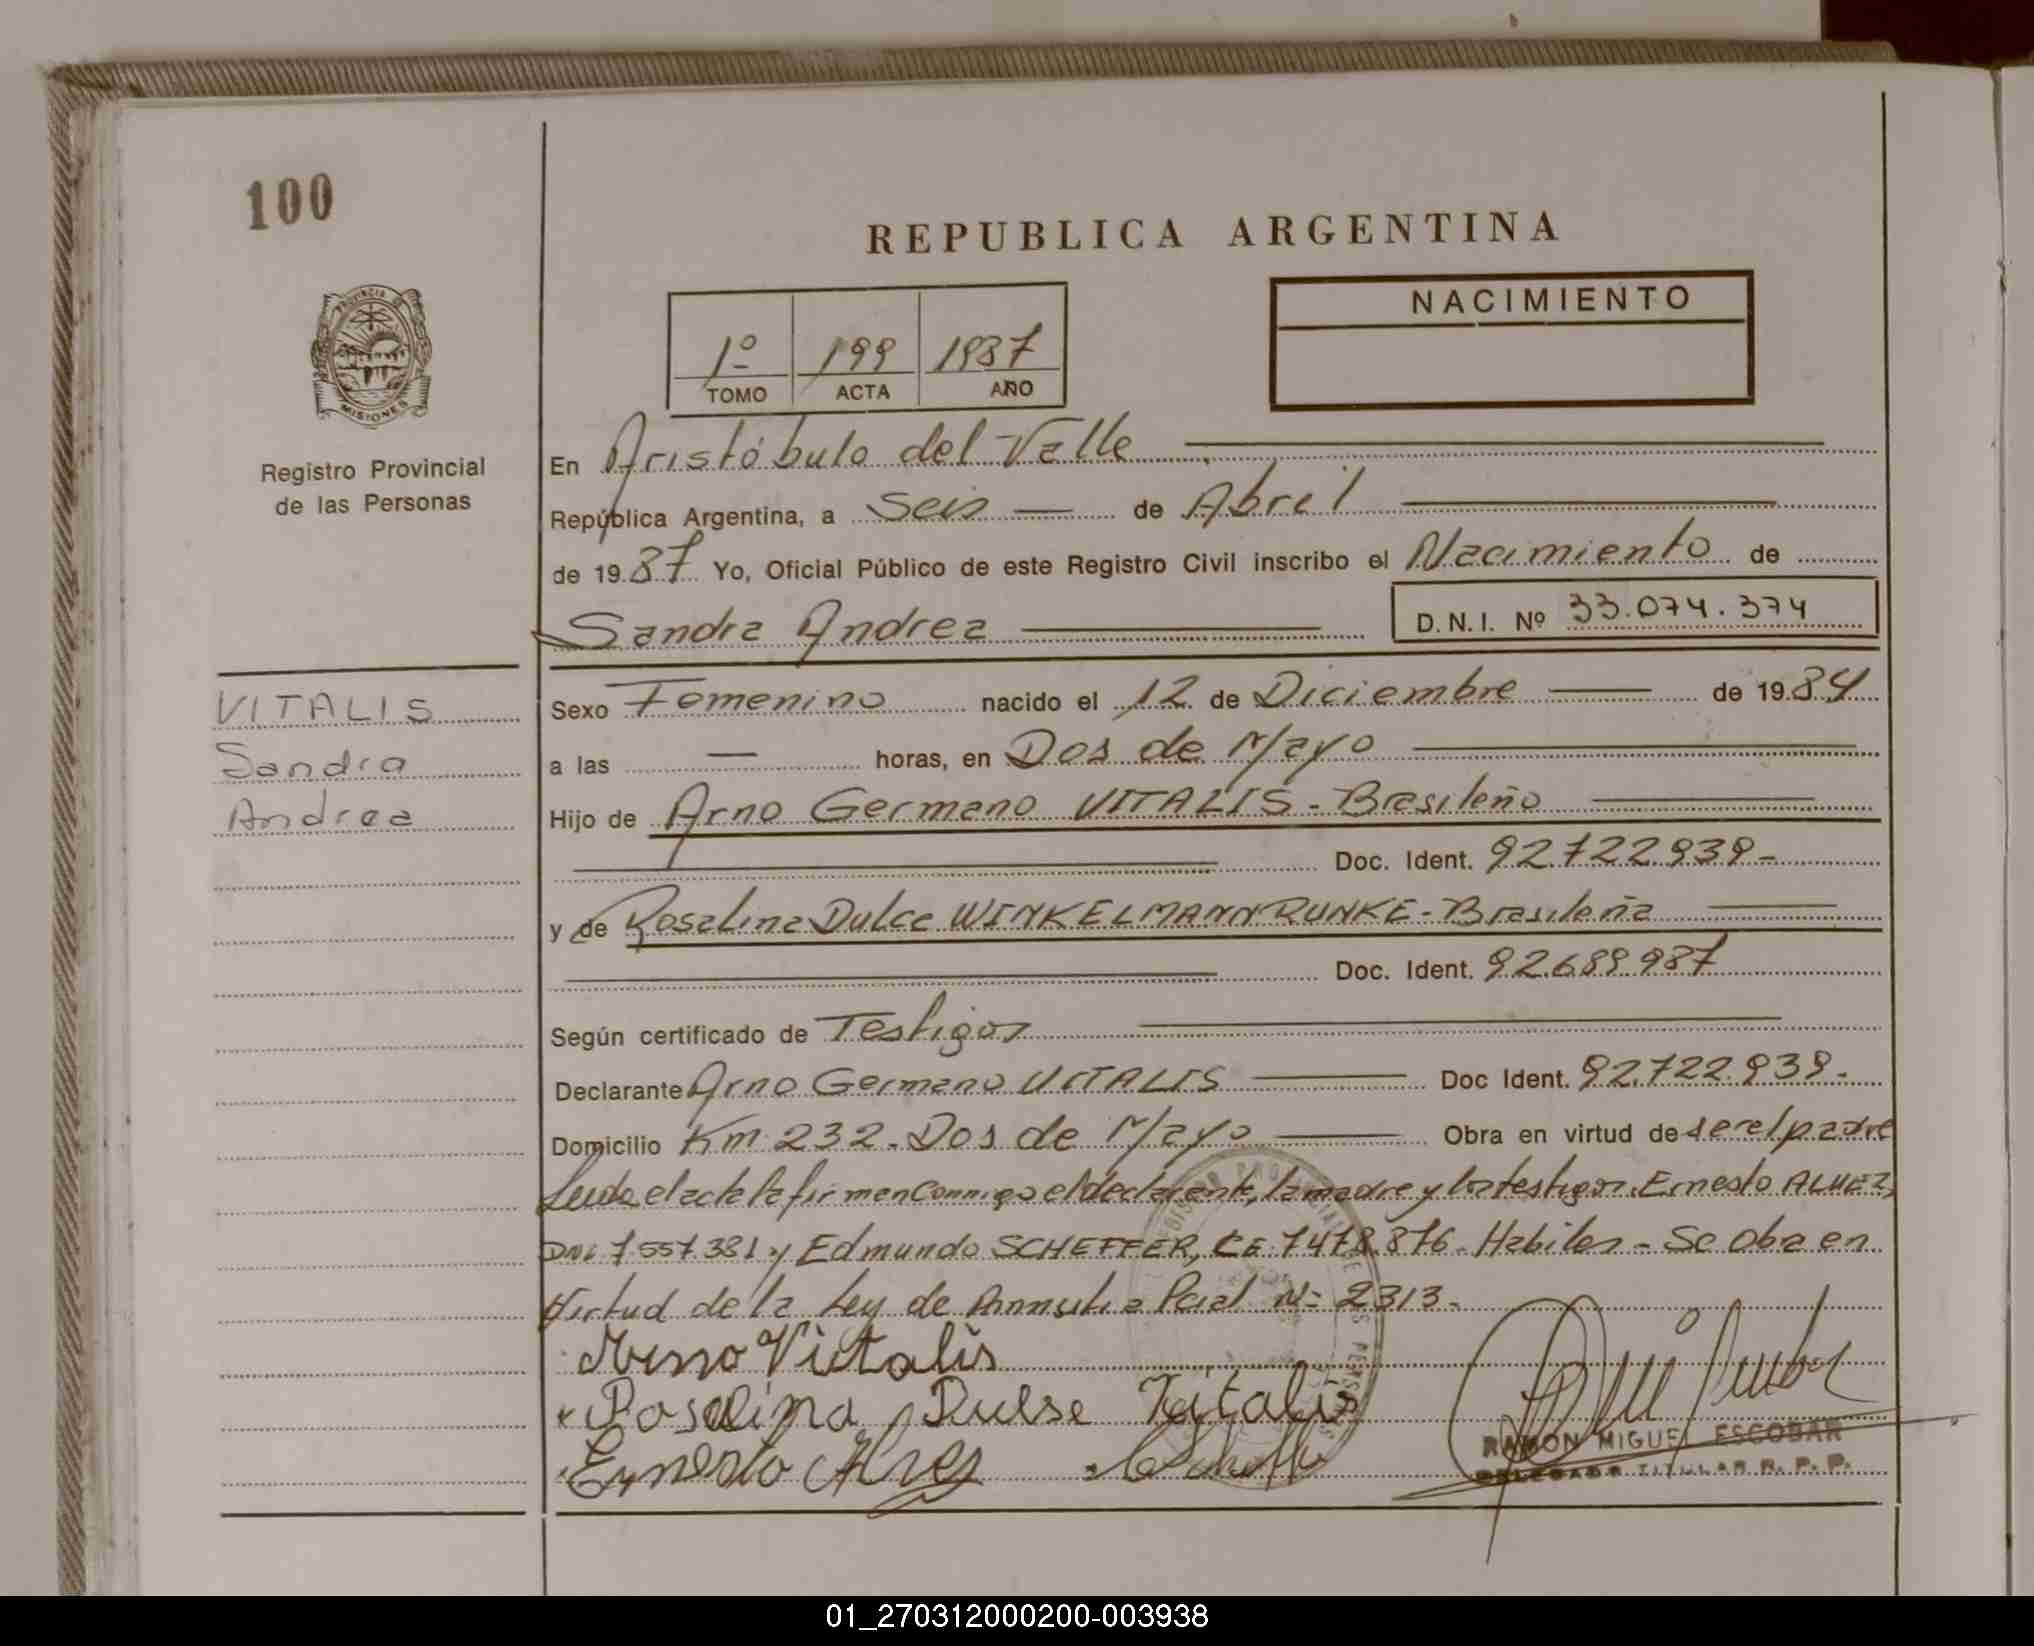 100
REPUBLICA ARGENTINA
NACIMIENTO
1º 199 1987
TOMO ACTA AÑO
PROVINCIA DE
MISIONES
Registro Provincial
de las Personas
En Aristóbulo del Valle
República Argentina, a Seis de Abril
de 1987 Yo, Oficial Público de este Registro Civil inscribo el Nacimiento de
Sandra Andrea D.N.I. Nº 33.074.374
VITALIS
Sandra
Andrea
Sexo Femenino nacido el 12 de Diciembre de 1984
a las — horas, en Dos de Mayo
Hijo de Arno Germano VITALIS - Brasileño
Doc. Ident. 92.722.939-
y de Rosalina Dulce WINKELMANN RUNKE - Brasileña
Doc. Ident. 92.689.987
Según certificado de Testigos
Declarante Arno Germano VITALIS Doc Ident. 92.722.939-
Domicilio Km 232 - Dos de Mayo Obra en virtud de ser el padre
Leida el acta la firman conmigo el declarante, la madre y los testigos. Ernesto ALVEZ,
DNI 7.557.381 y Edmundo SCHEFFER, CE 7478.876 - Habiles - Se obra en
Virtud de la Ley de Nº 2313-
Arno Vitalis
Rosalina Dulse Vitalis
Ernesto
RAMON MIGUEL ESCOBAR
DELEGADO TITULAR R. P. P.
01_270312000200-003938